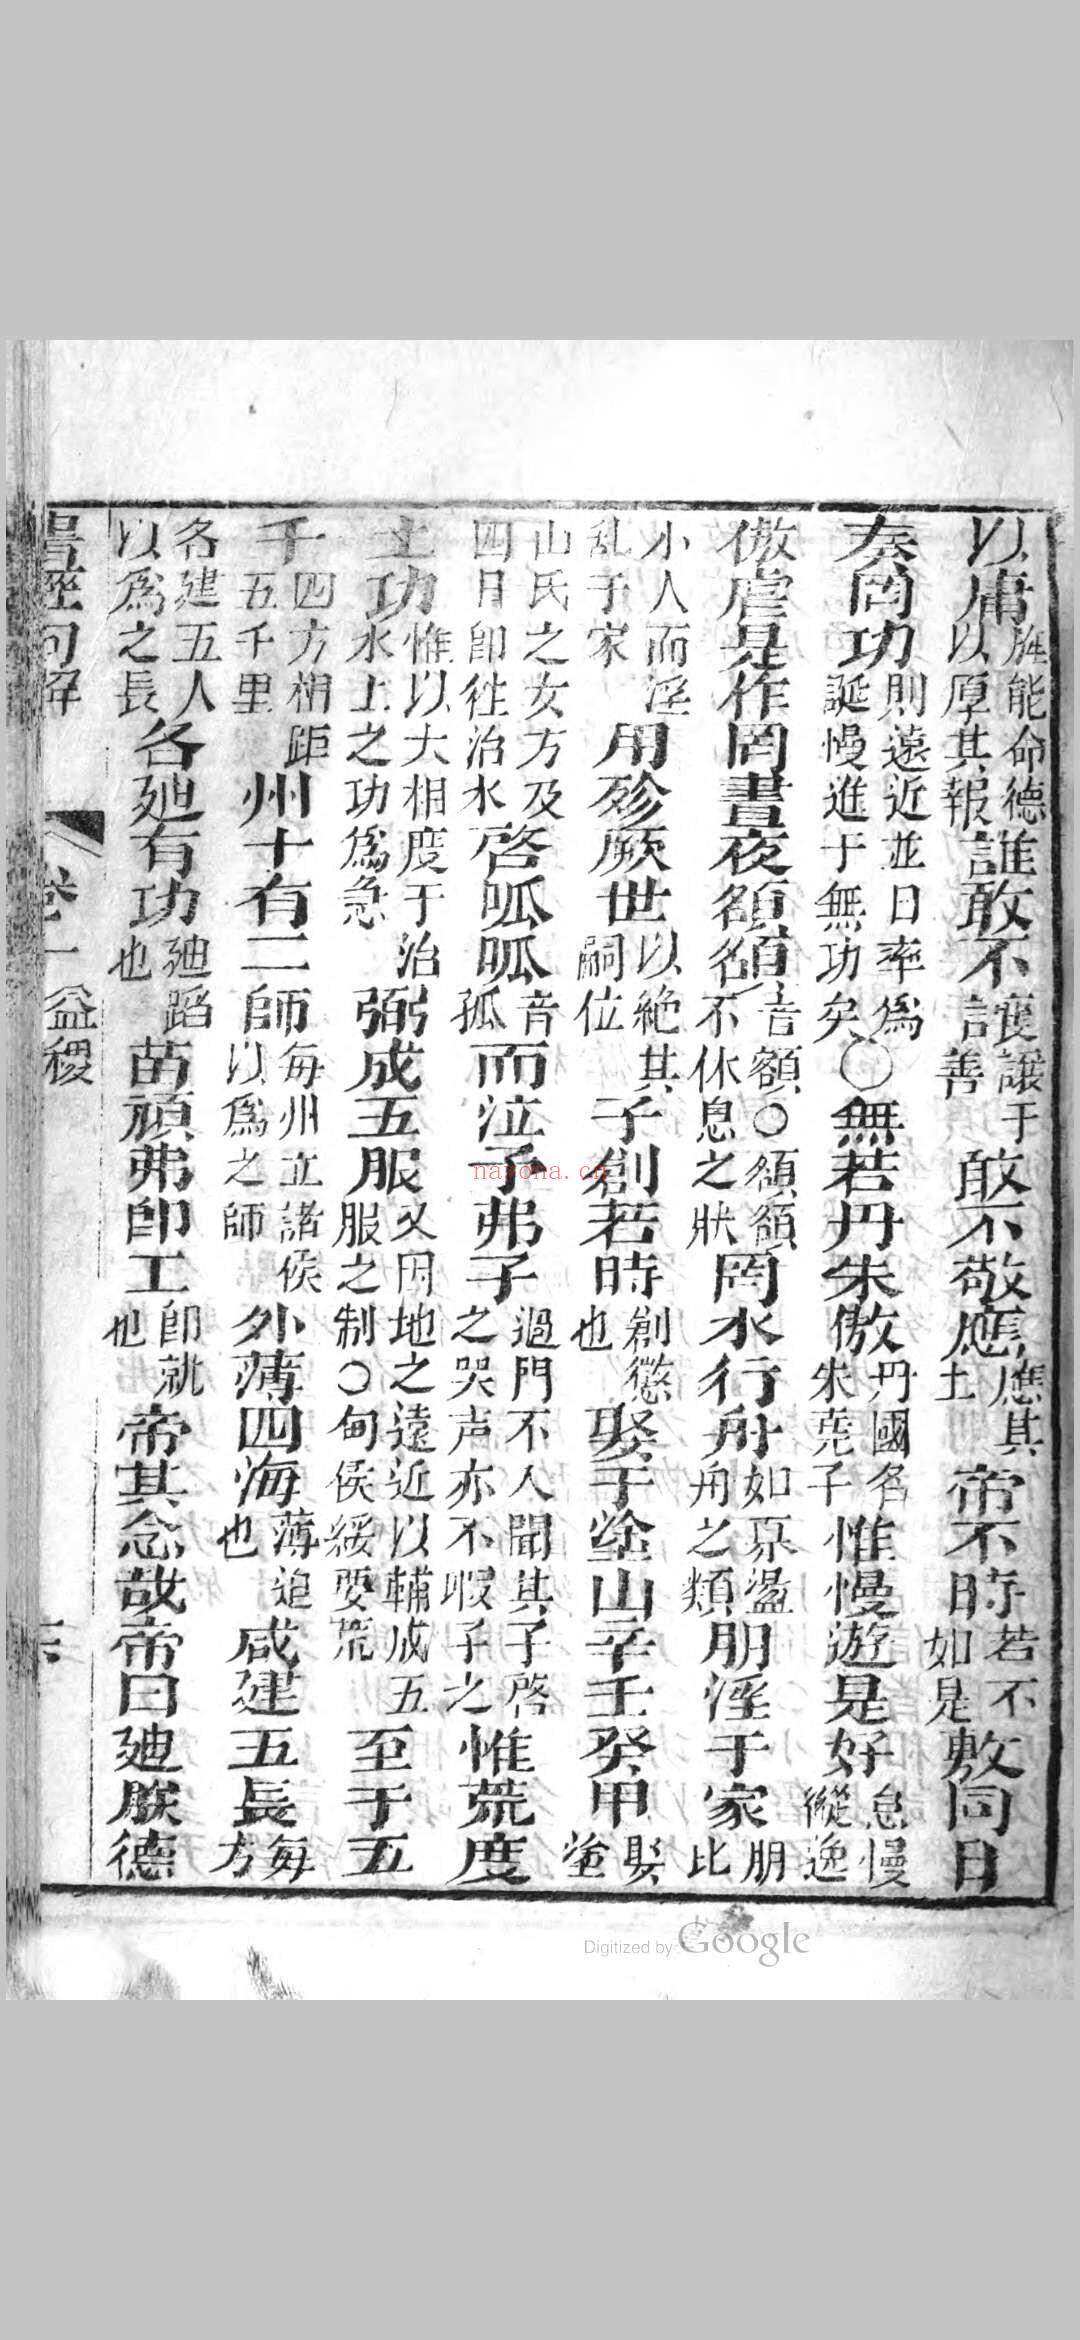 以庸旌能命德以厚其報誰敢不讓讓于善敢不敬應應其上帝不時若不如是敷同日
奏罔功則遠近並日率爲誕慢進于無功矣○無若丹朱傲丹國名朱堯子惟慢遊是好怠慢縱逸
傲虐是作罔晝夜頟頟音額○頟頟不休息之狀罔水行舟如奡盪舟之類朋淫于家朋比
小人而淫乱于家用殄厥世以絶其嗣位予創若時創懲也娶于塗山辛壬癸甲娶塗
山氏之女方及四日卽往治水啓呱呱音孤而泣予弗子過門不入聞其子啓之哭声亦不暇子之惟荒度
土功惟以大相度于治水土之功爲急弼成五服又因地之遠近以輔成五服之制○甸侯綏要荒至于五
千四方相距五千里州十有二師每州立諸侯以爲之師外薄四海薄迫也咸建五長每方
各建五人以爲之長各廸有功廸蹈也苗頑弗卽工卽就也帝其念哉帝曰廸朕德
書經句解 卷一 益稷
Digitized by Google
nayona.cn